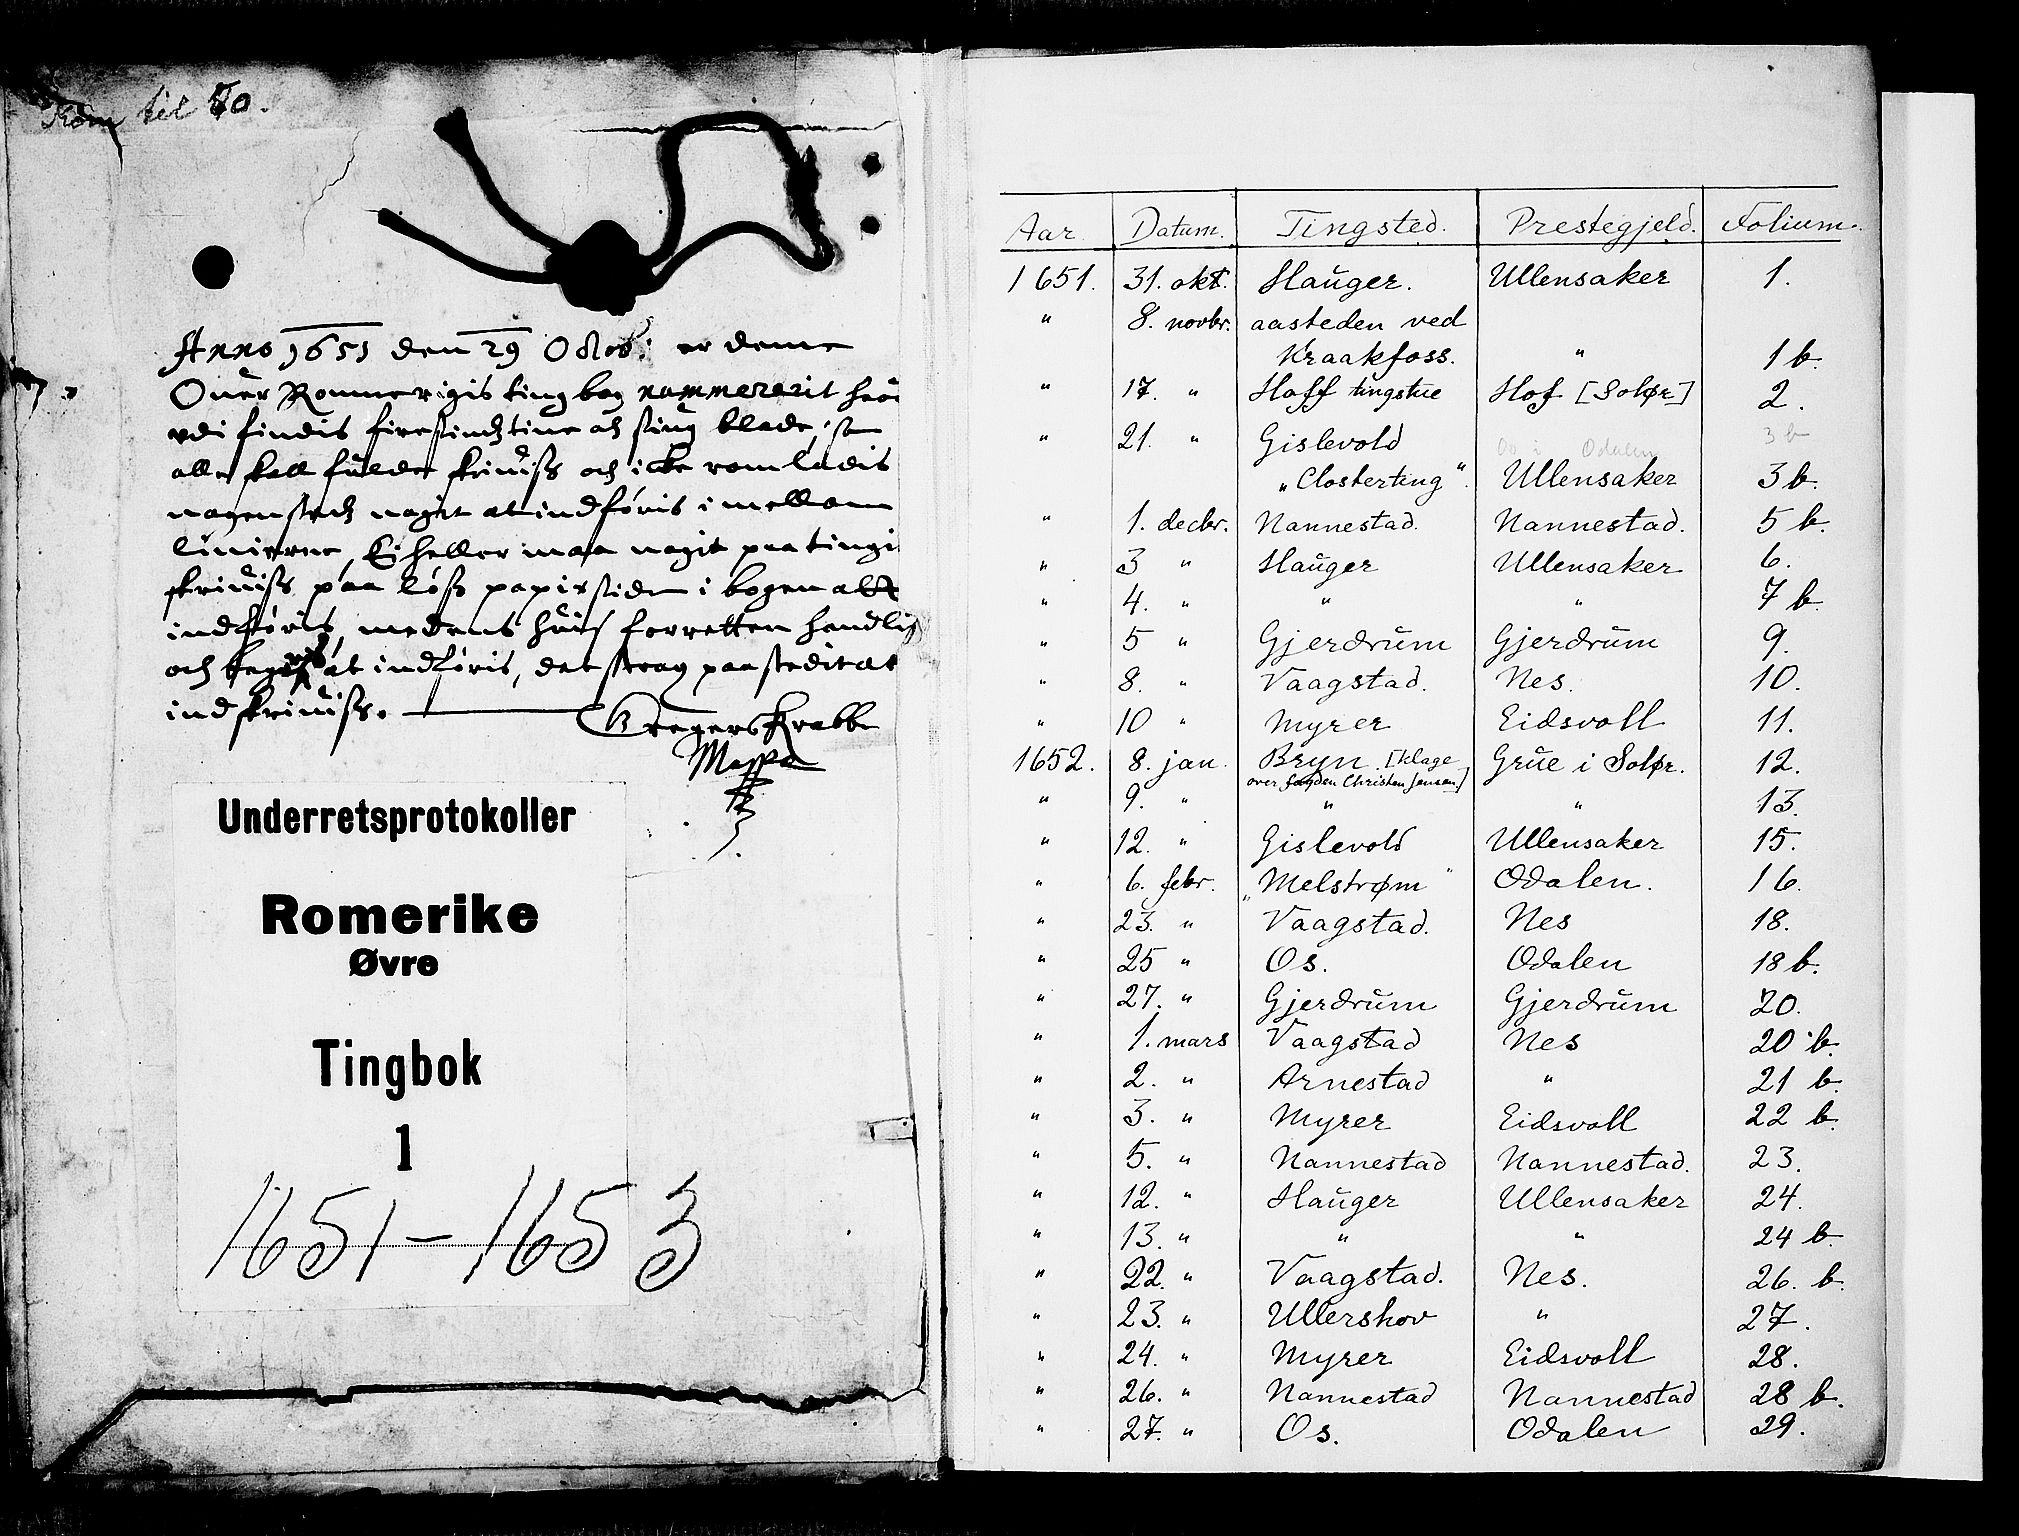 til 70.
Anno 1651 den 29 Octob: er denne
Ouer Rommerigis ting bog nommererit
vdi findis firesindztiue och siuff blade,
alle skall fulde skriuiss och icke romladis
nogenstedz nogit at indføris i mellom
linierne, Ei heller maa nogit paa tingi
skriuiss paa løss papir siden i bogen att
indføris, medens huis forretten handlis
och at indføris, det strax paa steditat
indskriuiss.
Gregers Krabbe
Mapp
Underretsprotokoller
Romerike
Øvre
Tingbok
1
1651-1653
Aar. Datum. Tingsted. Prestegjeld. Folium.
1651. 31. okt. Hauger. Ullensaker 1.
" 8. novbr. aasteden ved
Kraakfoss. " 1 b.
" 17. " Hoff tingstue Hof [Solør] 2.
" 21. " Gislevold Os i Odalen 3 b
"Closterting". Ullensaker 3 b.
" 1. decbr. Nannestad. Nannestad. 5 b.
" 3 " Hauger Ullensaker 6.
" 4. " " " 7 b.
" 5 " Gjerdrum Gjerdrum 9.
" 8. " Vaagstad. Nes. 10.
" 10 " Myrer Eidsvoll 11.
1652. 8. jan. Bryn. [klage Grue i Solør. 12.
over fogden Christen Jensen]
" 9. " " " 13.
" 12. " Gislevold Ullensaker 15.
" 6. febr. "Melstrøm" Odalen. 16.
" 23. " Vaagstad. Nes 18.
" 25 " Os. Odalen 18 b.
" 27. " Gjerdrum Gjerdrum 20.
" 1. mars Vaagstad Nes 20 b.
" 2. " Arnestad " 21 b.
" 3. " Myrer Eidsvoll 22 b.
" 5. " Nannestad Nannestad. 23.
" 12. " Hauger Ullensaker 24.
" 13. " " " 24 b.
" 22. " Vaagstad. Nes. 26. b.
" 23. " Ullershov " 27.
" 24. " Myrer Eidsvoll 28.
" 26. " Nannestad Nannestad 28 b.
" 27. " Os. Odalen 29.